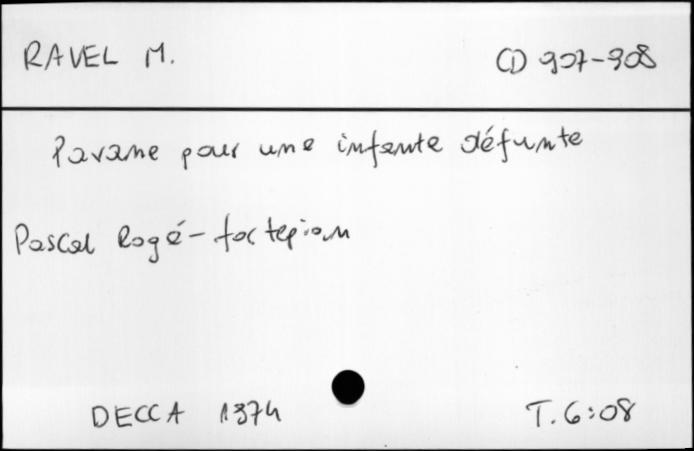 RAVEL M. CD 907-908
Pavane pour une infante défunte
Pascal Rogé - fortepian
DECCA 1974 T. 6:08